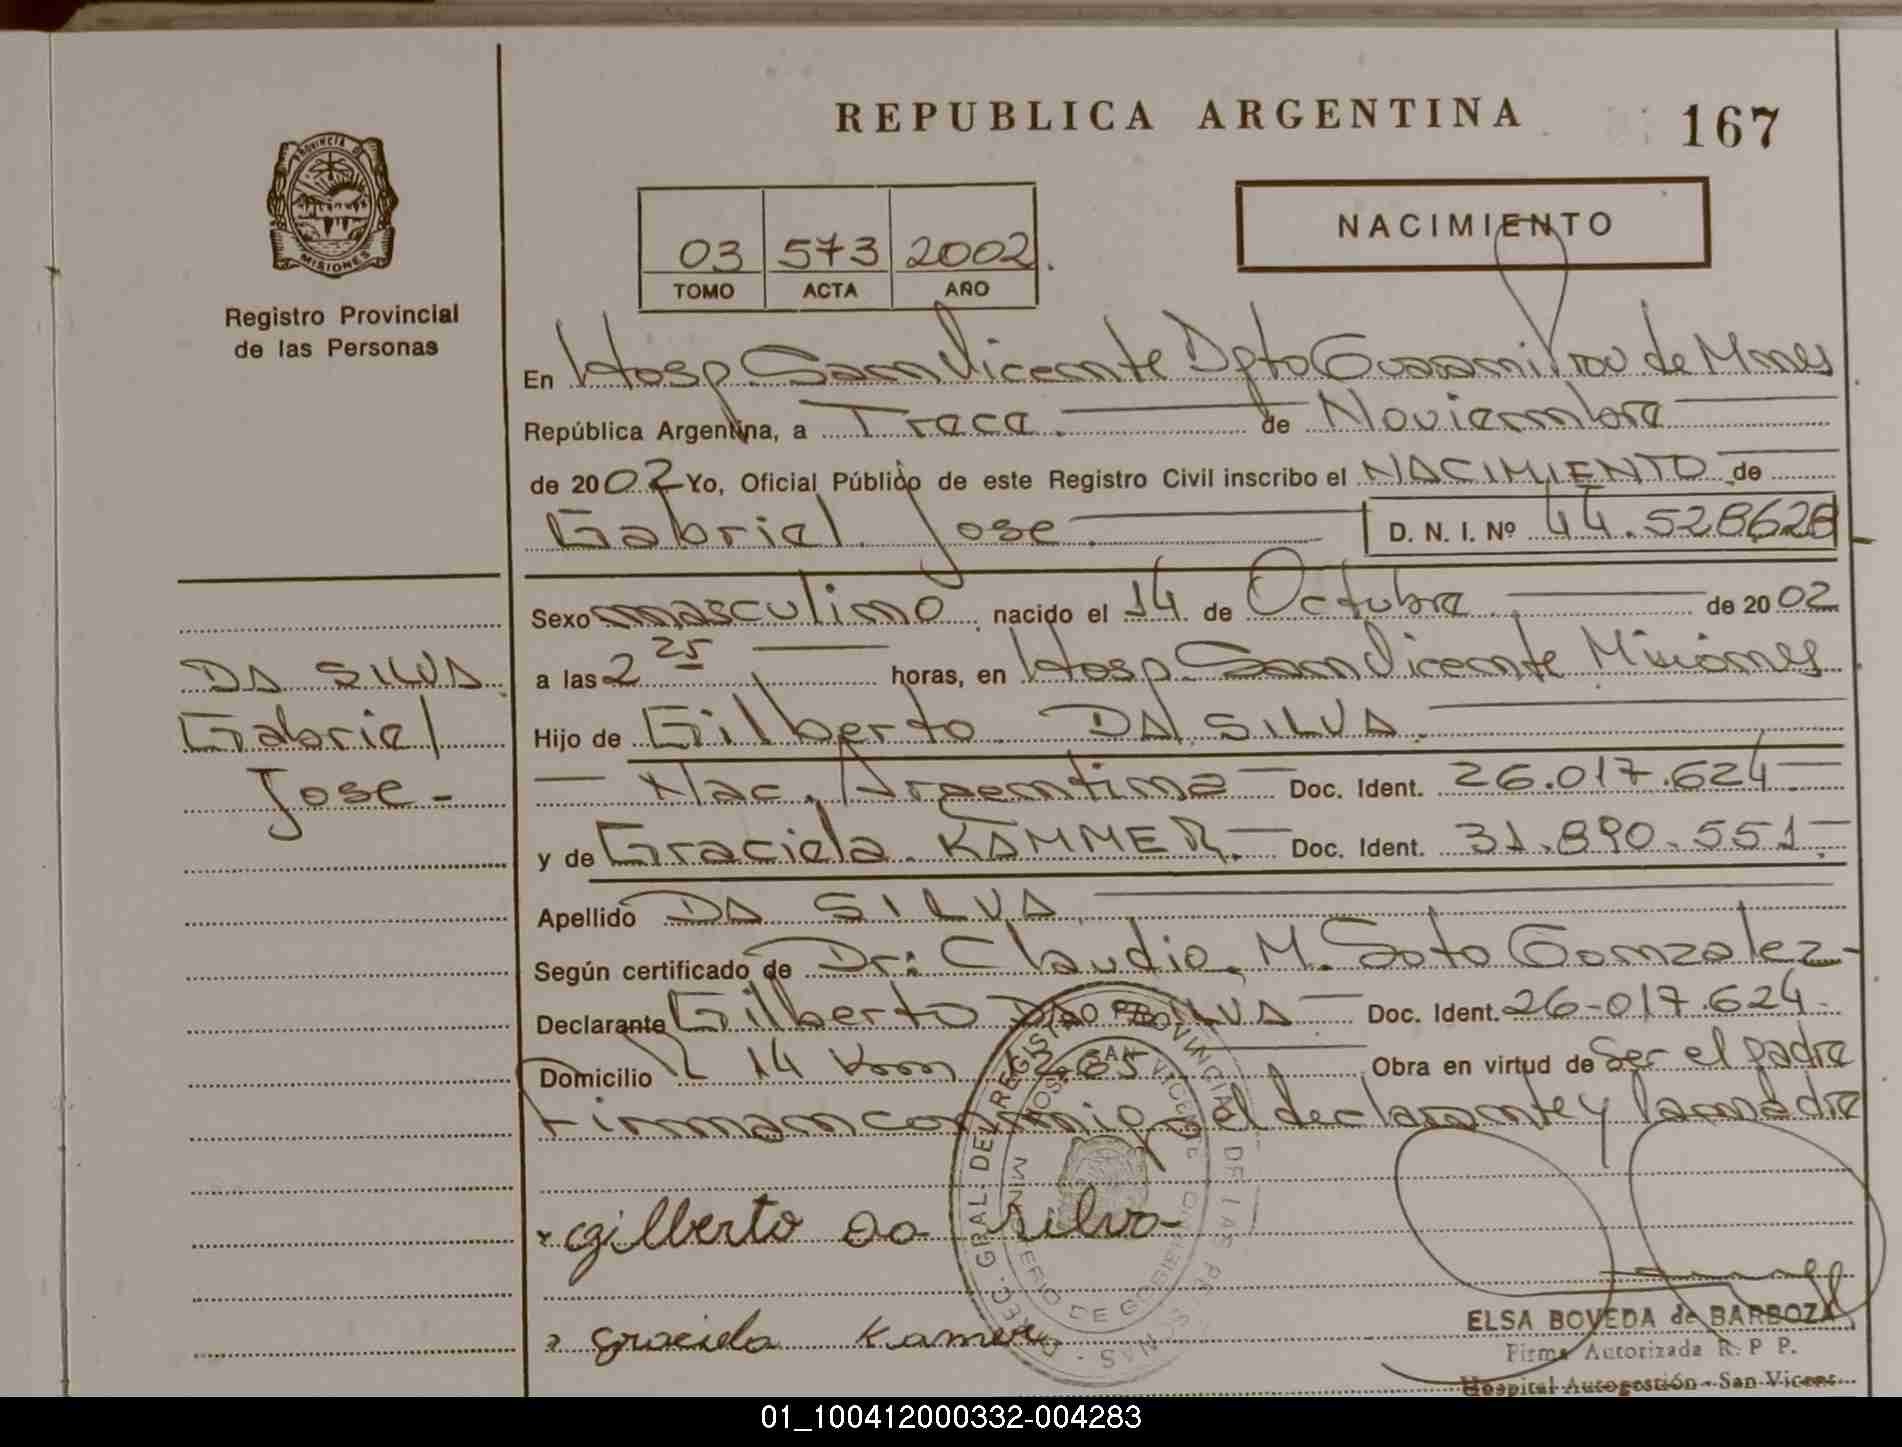 REPUBLICA ARGENTINA
167
PROVINCIA DE
MISIONES
Registro Provincial
de las Personas
03 573 2002
TOMO ACTA AÑO
NACIMIENTO
En Hosp. San Vicente Dpto Guarani Prov de Mnes
República Argentina, a Trece de Noviembre
de 2002 Yo, Oficial Público de este Registro Civil inscribo el NACIMIENTO de
Gabriel Jose D. N. I. Nº 44.528628
Sexo masculino nacido el 14 de Octubre de 2002
a las 2 25 horas, en Hosp. San Vicente Misiones
Hijo de Gilberto DA SILVA.
Nac. Argentina Doc. Ident. 26.017.624
y de Graciela KAMMER. Doc. Ident. 31.890.551
Apellido DA SILVA
Según certificado de Dr: Claudio M. Soto Gonzalez-
Declarante Gilberto DA SILVA Doc. Ident. 26-017.624
Domicilio L 14 Km 1265 Obra en virtud de Ser el padre
Firman conmigo el declarante y la madre
DA SILVA
Gabriel
Jose -
gilberto da silva
graciela Kamer
DIREC. GRAL. DEL REGISTRO PROVINCIAL DE LAS PERSONAS
HOSP. SAN VICENTE
MINISTERIO DE GOBIERNO
ELSA BOVEDA de BARBOZA
Firma Autorizada R. P P.
Hospital Autogestión - San Vicente
01_100412000332-004283